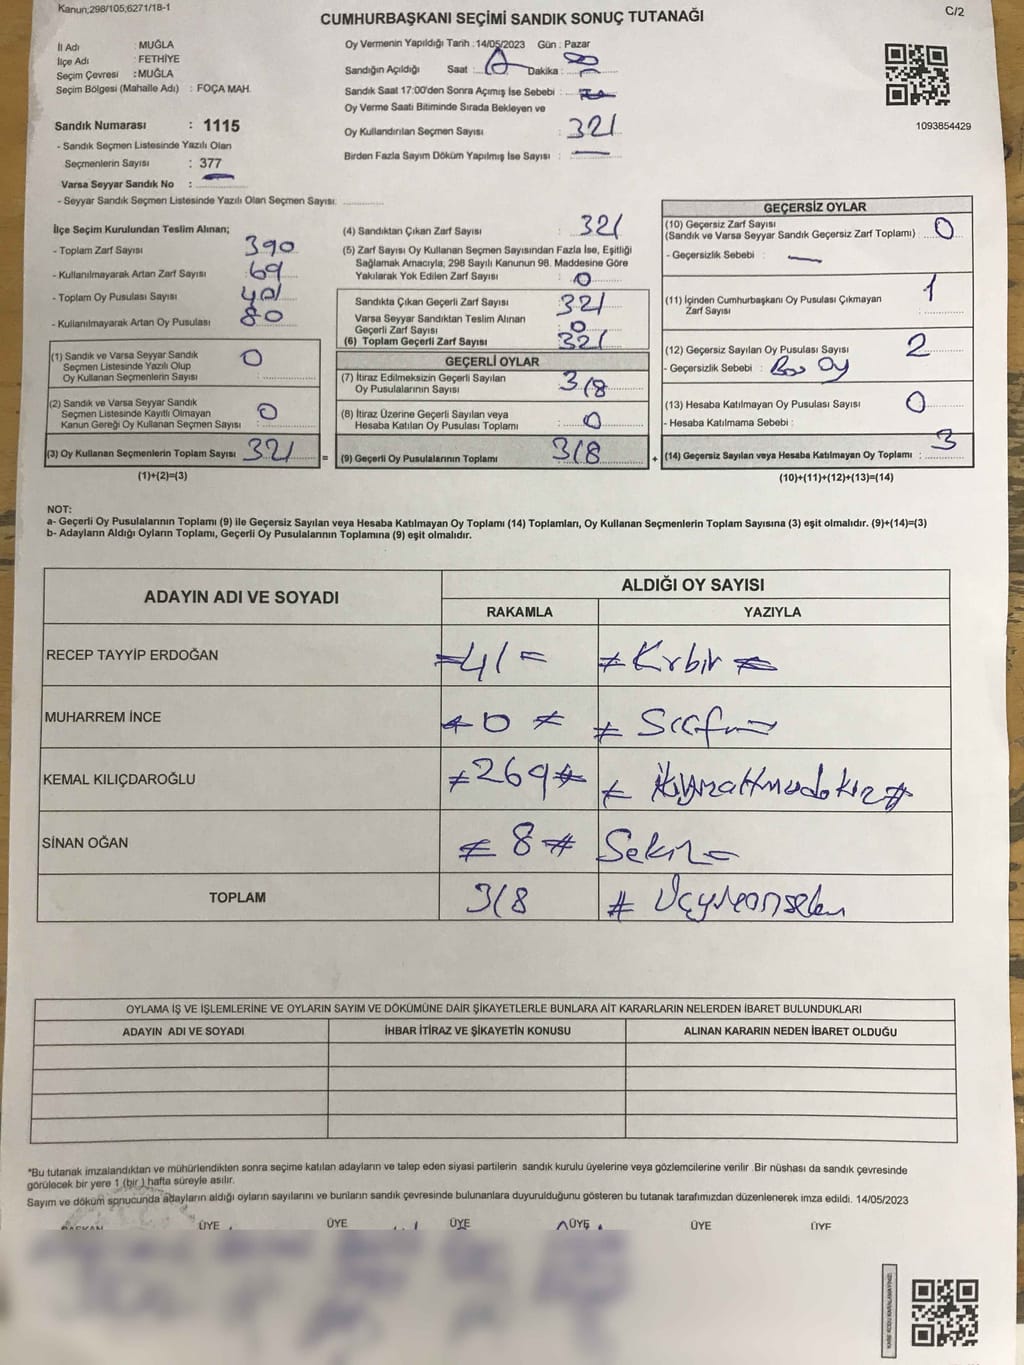 Kanun;298/105;6271/18-1
C/2
CUMHURBAŞKANI SEÇİMİ SANDIK SONUÇ TUTANAĞI
İl Adı : MUĞLA
İlçe Adı : FETHİYE
Seçim Çevresi : MUĞLA
Seçim Bölgesi (Mahalle Adı) : FOÇA MAH.
Sandık Numarası : 1115
- Sandık Seçmen Listesinde Yazılı Olan
Seçmenlerin Sayısı : 377
Varsa Seyyar Sandık No :
- Seyyar Sandık Seçmen Listesinde Yazılı Olan Seçmen Sayısı:
Oy Vermenin Yapıldığı Tarih : 14/05/2023 Gün : Pazar
Sandığın Açıldığı Saat : Dakika :
Sandık Saat 17:00'den Sonra Açımış İse Sebebi :
Oy Verme Saati Bitiminde Sırada Bekleyen ve
Oy Kullandırılan Seçmen Sayısı : 321
Birden Fazla Sayım Döküm Yapılmış İse Sayısı : —
1093854429
İlçe Seçim Kurulundan Teslim Alınan;
- Toplam Zarf Sayısı 390
- Kullanılmayarak Artan Zarf Sayısı 69
- Toplam Oy Pusulası Sayısı 401
- Kullanılmayarak Artan Oy Pusulası 80
(1) Sandık ve Varsa Seyyar Sandık
Seçmen Listesinde Yazılı Olup
Oy Kullanan Seçmenlerin Sayısı : 0
(2) Sandık ve Varsa Seyyar Sandık
Seçmen Listesinde Kayıtlı Olmayan
Kanun Gereği Oy Kullanan Seçmen Sayısı : 0
(3) Oy Kullanan Seçmenlerin Toplam Sayısı 321 =
(1)+(2)=(3)
(4) Sandıktan Çıkan Zarf Sayısı : 321
(5) Zarf Sayısı Oy Kullanan Seçmen Sayısından Fazla İse, Eşitliği
Sağlamak Amacıyla, 298 Sayılı Kanunun 98. Maddesine Göre
Yakılarak Yok Edilen Zarf Sayısı : 0
Sandıkta Çıkan Geçerli Zarf Sayısı : 321
Varsa Seyyar Sandıktan Teslim Alınan
Geçerli Zarf Sayısı : 0
(6) Toplam Geçerli Zarf Sayısı : 321
GEÇERLİ OYLAR
(7) İtiraz Edilmeksizin Geçerli Sayılan
Oy Pusulalarının Sayısı : 318
(8) İtiraz Üzerine Geçerli Sayılan veya
Hesaba Katılan Oy Pusulası Toplamı : 0
(9) Geçerli Oy Pusulalarının Toplamı 318 +
GEÇERSİZ OYLAR
(10) Geçersiz Zarf Sayısı
(Sandık ve Varsa Seyyar Sandık Geçersiz Zarf Toplamı) : 0
- Geçersizlik Sebebi : —
(11) İçinden Cumhurbaşkanı Oy Pusulası Çıkmayan
Zarf Sayısı : 1
(12) Geçersiz Sayılan Oy Pusulası Sayısı 2
- Geçersizlik Sebebi : Boş Oy
(13) Hesaba Katılmayan Oy Pusulası Sayısı 0
- Hesaba Katılmama Sebebi :
(14) Geçersiz Sayılan veya Hesaba Katılmayan Oy Toplamı : 3
(10)+(11)+(12)+(13)=(14)
NOT:
a- Geçerli Oy Pusulalarının Toplamı (9) ile Geçersiz Sayılan veya Hesaba Katılmayan Oy Toplamı (14) Toplamları, Oy Kullanan Seçmenlerin Toplam Sayısına (3) eşit olmalıdır. (9)+(14)=(3)
b- Adayların Aldığı Oyların Toplamı, Geçerli Oy Pusulalarının Toplamına (9) eşit olmalıdır.
ADAYIN ADI VE SOYADI ALDIĞI OY SAYISI
RAKAMLA YAZIYLA
RECEP TAYYİP ERDOĞAN =41= ≠ Kırbir ≠
MUHARREM İNCE ≠ 0 ≠ ≠ Sıfır
KEMAL KILIÇDAROĞLU ≠ 269 ≠ ≠ ikiyüzaltmışdokuz #
SİNAN OĞAN ≠ 8 # Sekiz =
TOPLAM 318 # Üçyüzonsekiz
OYLAMA İŞ VE İŞLEMLERİNE VE OYLARIN SAYIM VE DÖKÜMÜNE DAİR ŞİKAYETLERLE BUNLARA AİT KARARLARIN NELERDEN İBARET BULUNDUKLARI
ADAYIN ADI VE SOYADI İHBAR İTİRAZ VE ŞİKAYETİN KONUSU ALINAN KARARIN NEDEN İBARET OLDUĞU
*Bu tutanak imzalandıktan ve mühürlendikten sonra seçime katılan adayların ve talep eden siyasi partilerin sandık kurulu üyelerine veya gözlemcilerine verilir .Bir nüshası da sandık çevresinde
görülecek bir yere 1 (bir ) hafta süreyle asılır.
Sayım ve döküm sonucunda adayların aldığı oyların sayılarını ve bunların sandık çevresinde bulunanlara duyurulduğunu gösteren bu tutanak tarafımızdan düzenlenerek imza edildi. 14/05/2023
BAŞKAN ÜYE ÜYE ÜYE ÜYE ÜYE ÜYE